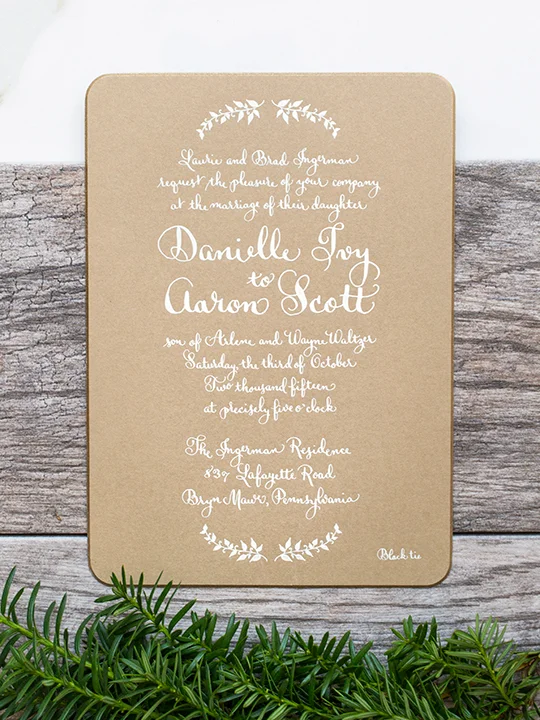 Laurie and Brad Ingerman
request the pleasure of your company
at the marriage of their daughter
Danielle Ivy
to
Aaron Scott
son of Arlene and Wayne Waltzer
Saturday, the third of October
Two thousand fifteen
at precisely five o'clock
The Ingerman Residence
837 Lafayette Road
Bryn Mawr, Pennsylvania
Black tie